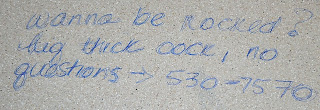 wanna be rocked?
big thick cock, no
questions → 530-7570